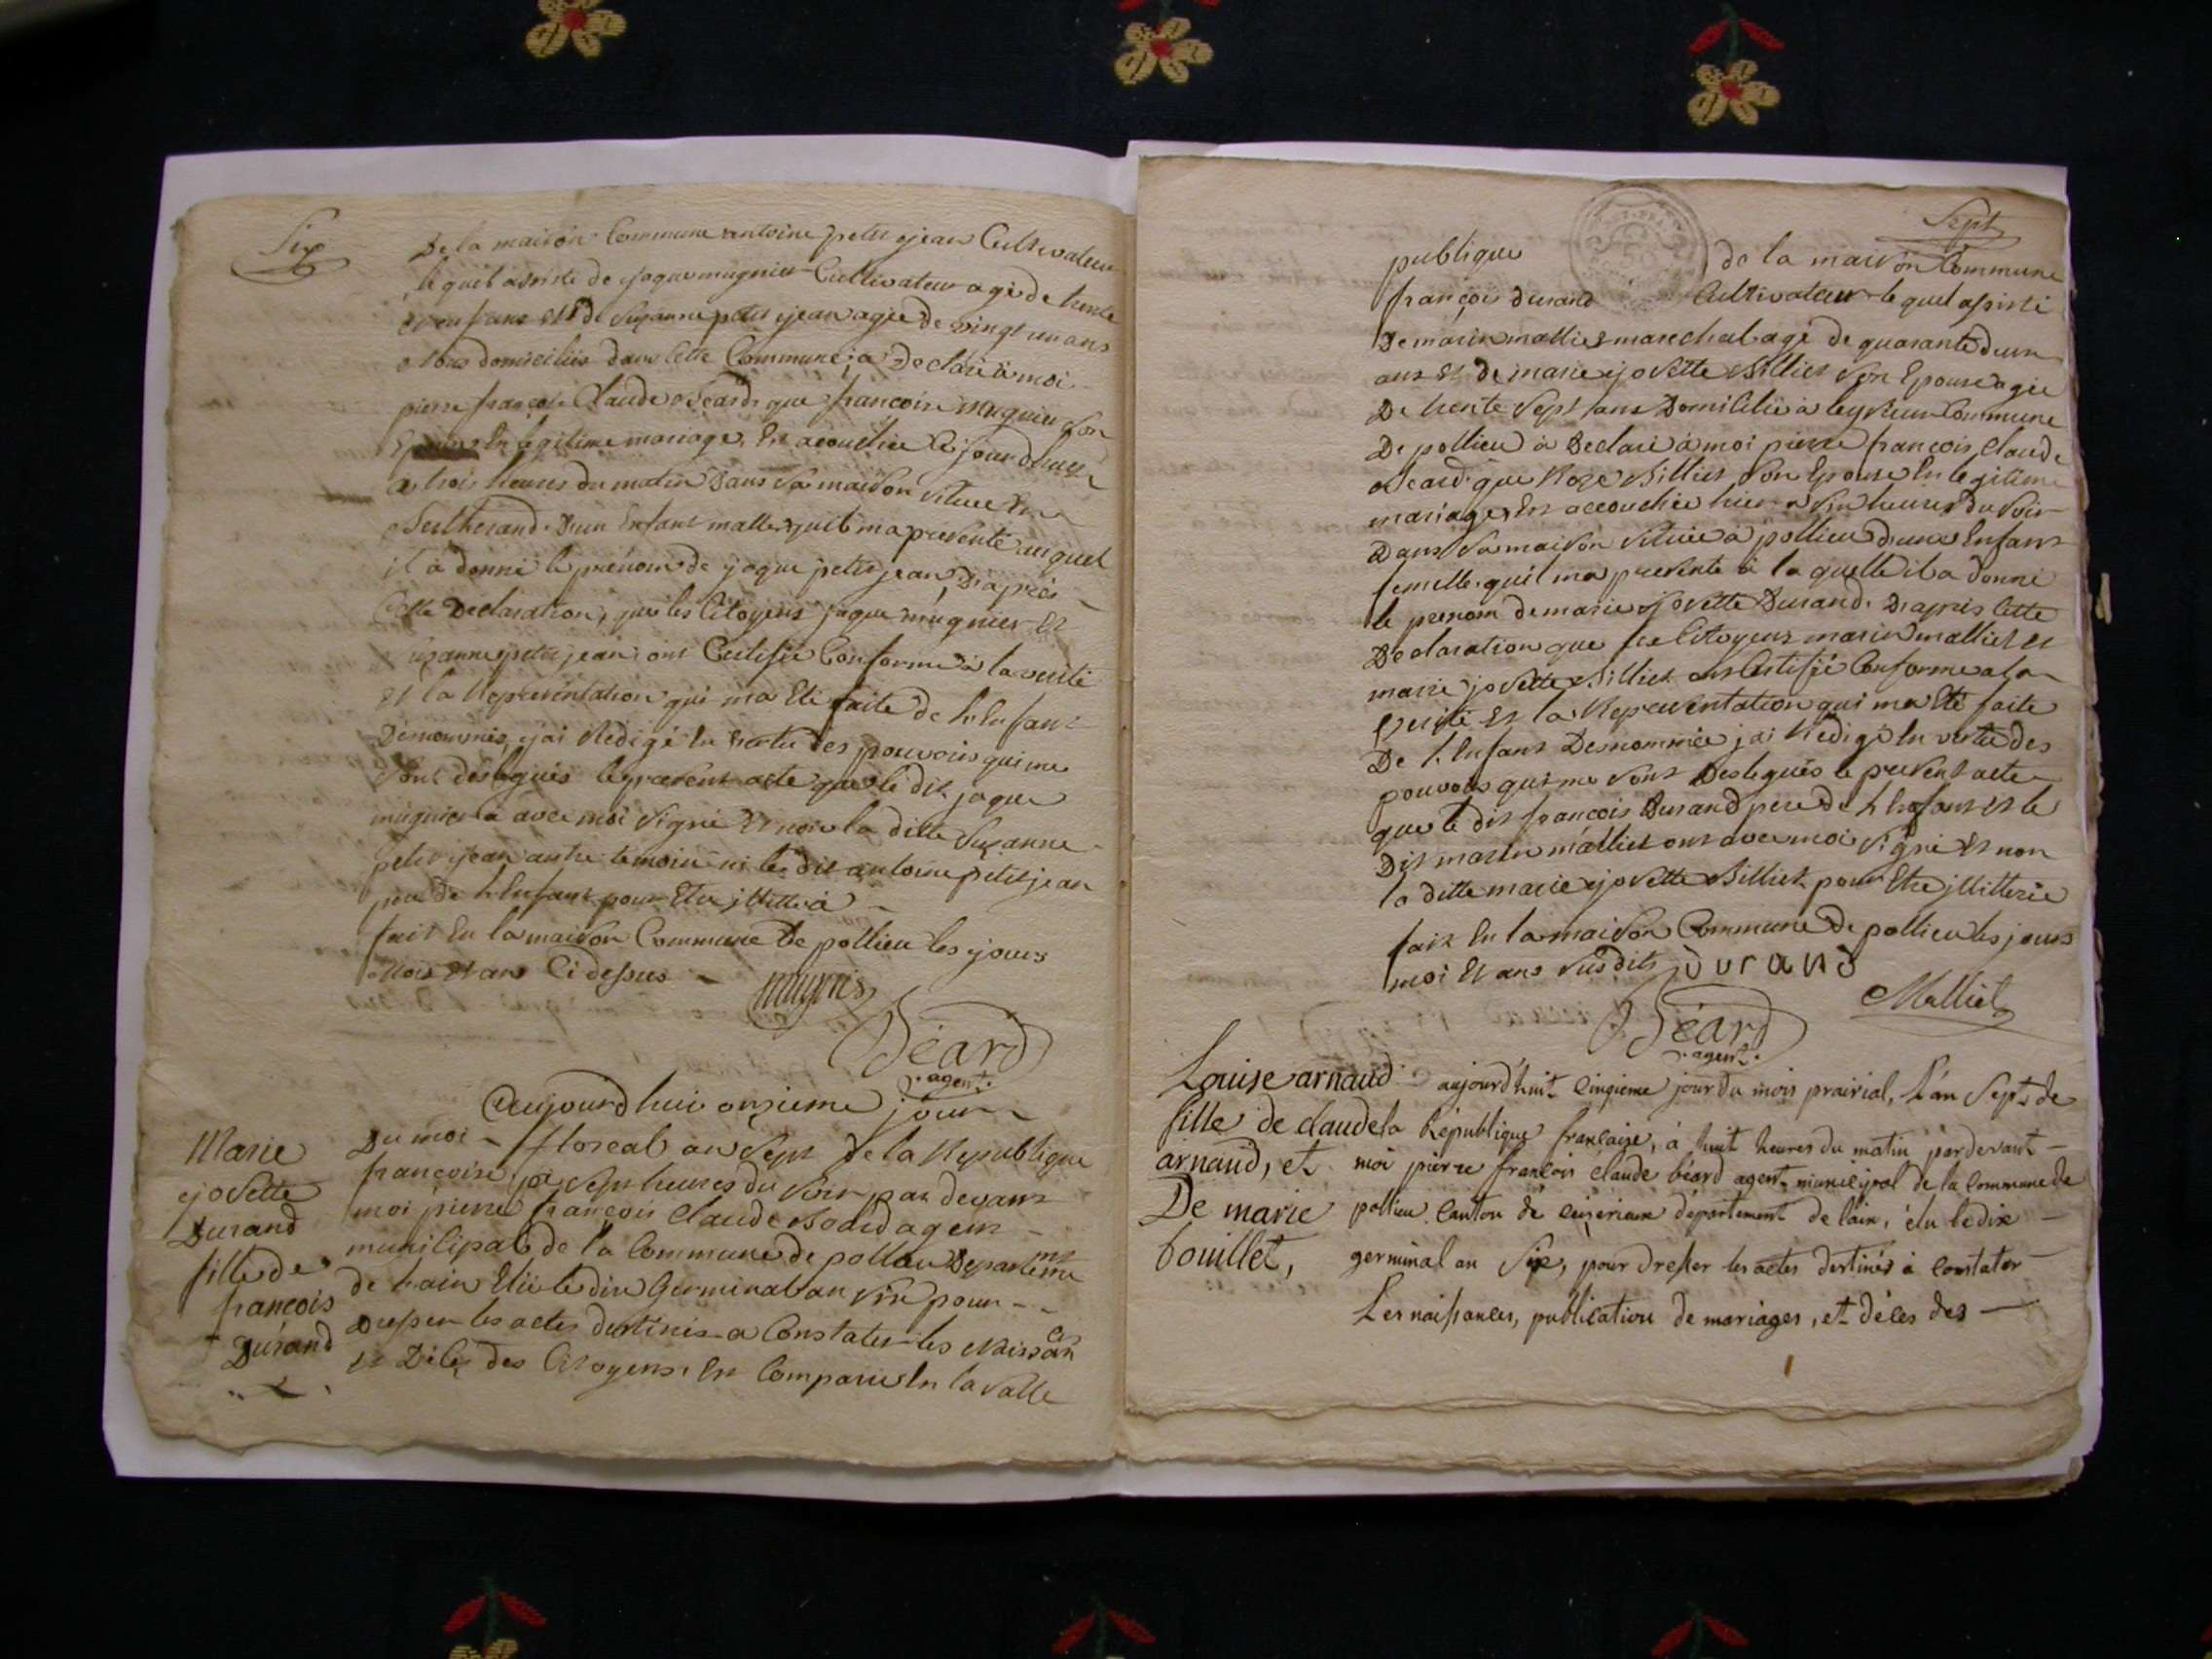 Six
De la maison Commune antoine petit jean Cultivateur
lequel assisté de jaque mugnier Cultivateur agé de trente
et un ans et de Suzanne petit jean agée de vingt un ans
tous domiciliés dans cette Commune, a declaré à moi
pierre françois Claude Béard que francoise mugnier son
Epouse En legitime mariage, Est acouchée ce jourdhuy
a trois heures du matin Dans sa maison située En
D'un Enfant malle, quil ma presenté auquel
il à donné le prénom de jaque petit jean, D'après
Cette Declaration, que les Citoyens jaque mugnier Et
Suzanne petit jean ont Certifié Conforme à la verité
Et la Representation qui ma Eté faite de L'Enfant
Denommés, jai Redigé En vertu des pouvoirs qui me
sont deslegués le present acte que le dit jaque
mugnier a avec moi signé Et non la ditte Suzanne
petit jean autre temoin ni le dit antoine petit jean
pere de L'Enfant pour Etre illitteré
fait En la maison Commune De pollieu les jours
Mois Et ans Ci dessus
mugnier
Béard
agent.
Aujourdhui onzieme jour
Marie
josette
Durand
fille de
francois
Durand
Du moi floreal an Sept De la Republique
françoise, à Sept heures du Soir par devant
moi pierre françois Claude Béard agent
municipal de la Commune de pollieu Departement
de Lain Elû le dix Germinal an Six pour
Dresser les actes destinés a Constater les Naissances
Et Déces des Citoyens. Est Comparu En la Salle
Sept
publique de la maison Commune
françois durand Cultivateur lequel assisté
De marin malliet marechal agé de quarante deux
ans Et de marie josette Billiet son Epouse agée
De trente Sept ans Domicilié à leyrieu Commune
De pollieu à Declaré à moi pierre françois Claude
Béard que Roze Billiet Son Epouse En legitime
mariage, Est accouchée hier a Six heures du Soir
Dans Sa maison Située à pollieu D'une Enfant
femelle quil ma presenté à laquelle il a donné
le prenom de marie josette Durand. D'après Cette
Declaration que les Citoyens marin malliet et
marie josette Billiet ont Certifié Conforme a la
verité Et la Representation qui ma Eté faite
De L'Enfant Denommée jai Redigé En vertu des
pouvoirs qui me Sont Deslegués le present acte
que le dit francois Durand pere de L'Enfant Et le
Dit marin malliet ont avec moi Signé Et non
la ditte marie josette Billiet pour Etre illitterée
fait En la maison Commune De pollieu les jours
moi Et ans Susdits durand
Malliet
Béard
agent.
Louise arnaud
fille de claude
arnaud, et
De marie
bouillet,
aujourd'huit Cinqieme jour du mois prairial, L'an Sept de
la République francaise, à huit heures du matin pardevant
moi pierre francois claude béard agent municipal de la Commune de
pollieu Canton de Ceizerieux département de lain, élu le dix
germinal an Six, pour dresser les actes destinés à Constater
Les naissances, publication de mariages, et déces des